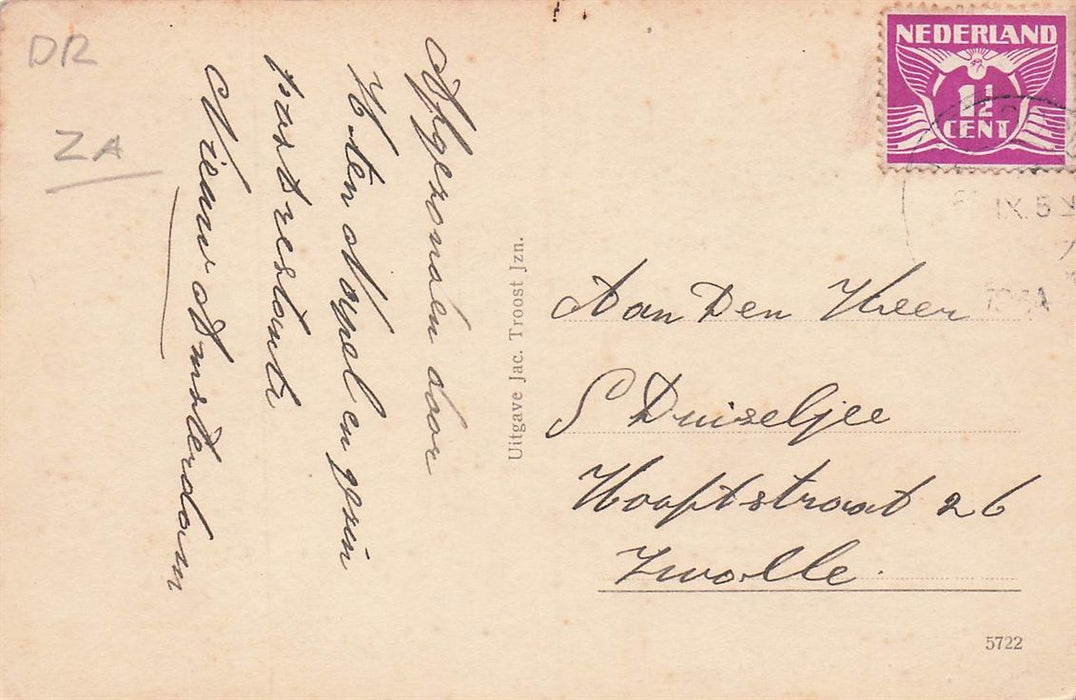 DR
ZA
Afgezonden door
H. ten Napel en gezin
post restante
Nieuw Amsterdam
Uitgave Jac. Troost Jzn.
NEDERLAND
1½
CENT
IX. 5
Aan Den Heer
S Duiseljee
Hooftstraat 26
Zwolle.
5722